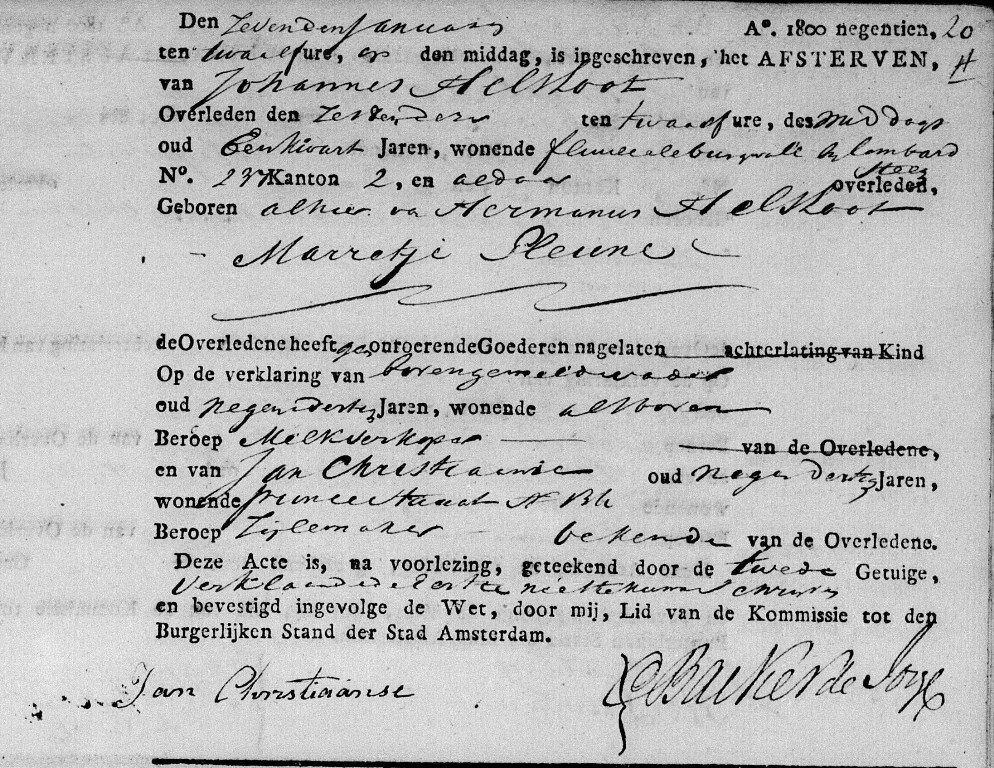 Den Zevenden Januarij A°. 1800 negentien, 20
ten twaalf ure, op den middag, is ingeschreven, het AFSTERVEN, H
van Johannes Helsloot
Overleden den Zesden dezer ten twaalf ure, des middags
oud Een kwart Jaren, wonende fluweeleburgwall by lombard
steeg
N°. 237 Kanton 2, en aldaar overleden,
Geboren alhier van Hermanus Helsloot
Marretje Pleune
de Overledene heeft geen onroerende Goederen nagelaten achterlating van Kind
Op de verklaring van bovengemelde vader
oud negenendertig Jaren, wonende als boven
Beroep Melkverkoper van de Overledene,
en van Jan Christiaanse oud negen dertig Jaren,
wonende princestraat N
Beroep Zijlemaker bekende van de Overledene.
Deze Acte is, na voorlezing, geteekend door de twede Getuige,
verklarende de eerste niet te kunnen schrijven
en bevestigd ingevolge de Wet, door mij, Lid van de Kommissie tot den
Burgerlijken Stand der Stad Amsterdam.
Jan Christiaanse Backer de Jonge